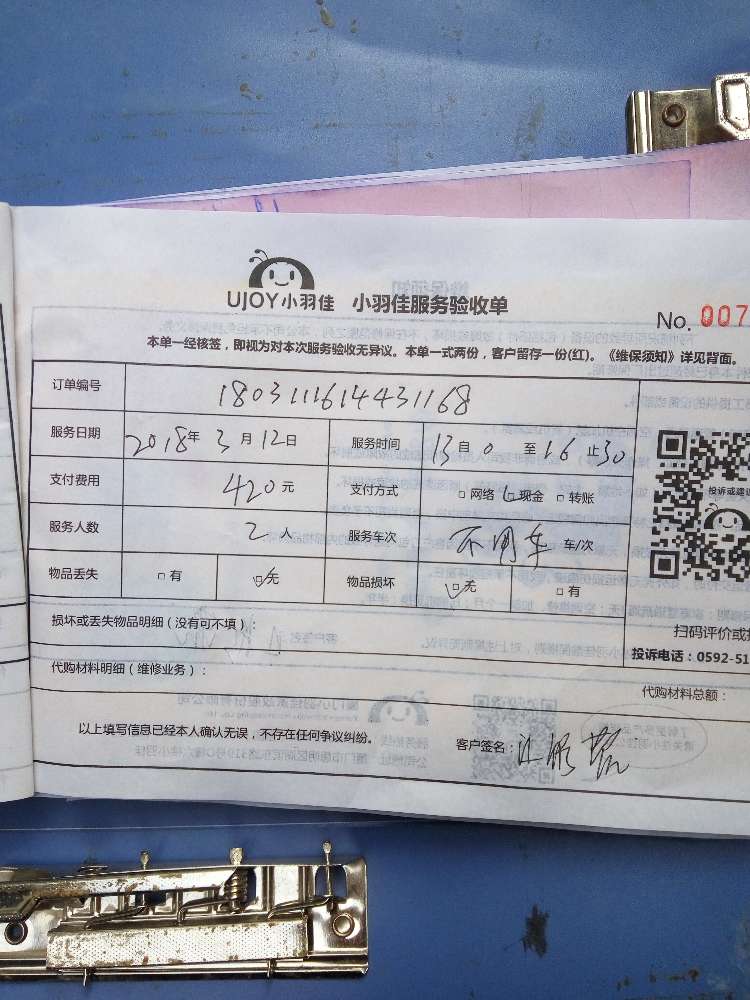 UJOY小羽佳 小羽佳服务验收单
No. 007
本单一经核签，即视为对本次服务验收无异议。本单一式两份，客户留存一份(红)。《维保须知》详见背面。
订单编号 1803111614431168
服务日期 2018年3月12日 服务时间 13自0至16止30
支付费用 420元 支付方式 □网络 □现金 □转账
服务人数 2人 服务车次 不用车 车/次
物品丢失 □有 □无 物品损坏 □无 □有
投诉或建
损坏或丢失物品明细（没有可不填）：
扫码评价或投
投诉电话：0592-51
代购材料明细（维修业务）：
代购材料总额：
以上填写信息已经本人确认无误，不存在任何争议纠纷。
客户签名：